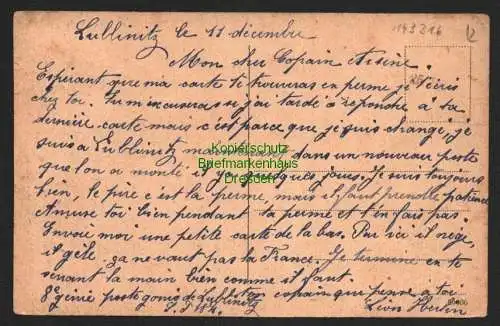 Lublinitz le 11 décembre
143216
12
Mon cher Copain Arsène.
Espérant que ma carte te trouvera en perme je t'écris
chez toi. Tu m'excuseras si j'ai tardé a repondre a ta
dernière carte mais c'est parce que je suis changé, je
suis a Lublinitz maintenant dans un nouveau poste
que l'on a monté il y a quelques jours. Je suis toujours
bien, le pire c'est la perme, mais il faut prendre patience
Amuse toi bien pendant ta perme et t'en fais pas.
Envoie moi une petite carte de la bas. Par ici il neige,
il gèle, ça ne vaut pas la France. Je termine en te
serrant la main bien comme il faut.
8e génie poste gonio de Lublinitz ton copain qui pense a toi
S.P. 114.
Léon
Kopierschutz
Briefmarkenhaus
Dresden